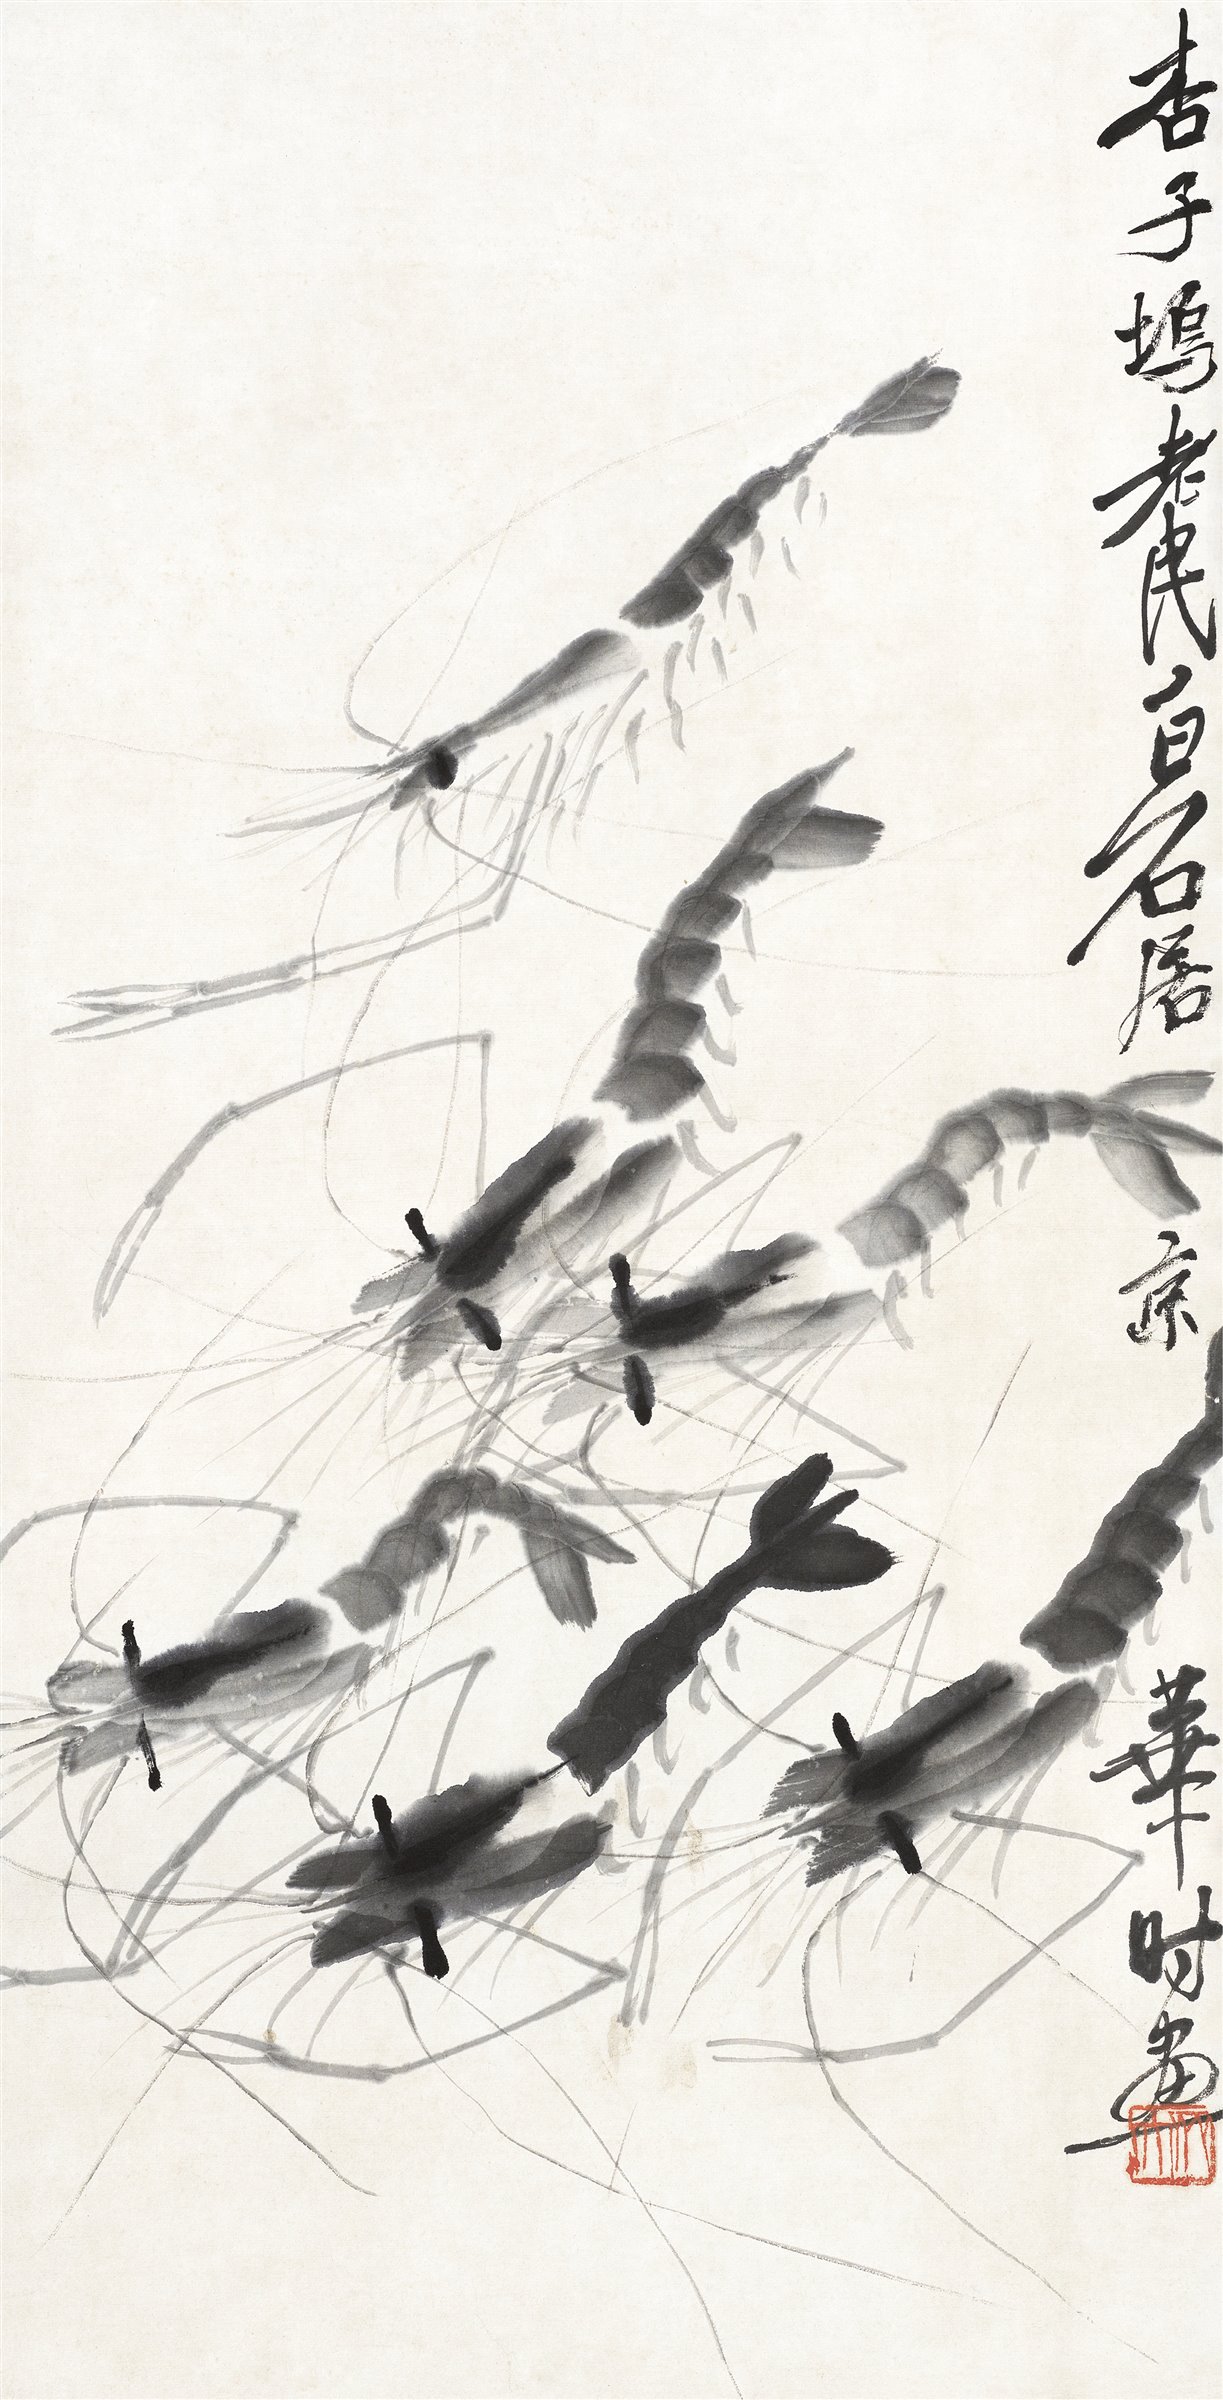 杏子塢老民白石居京華時畫
木人